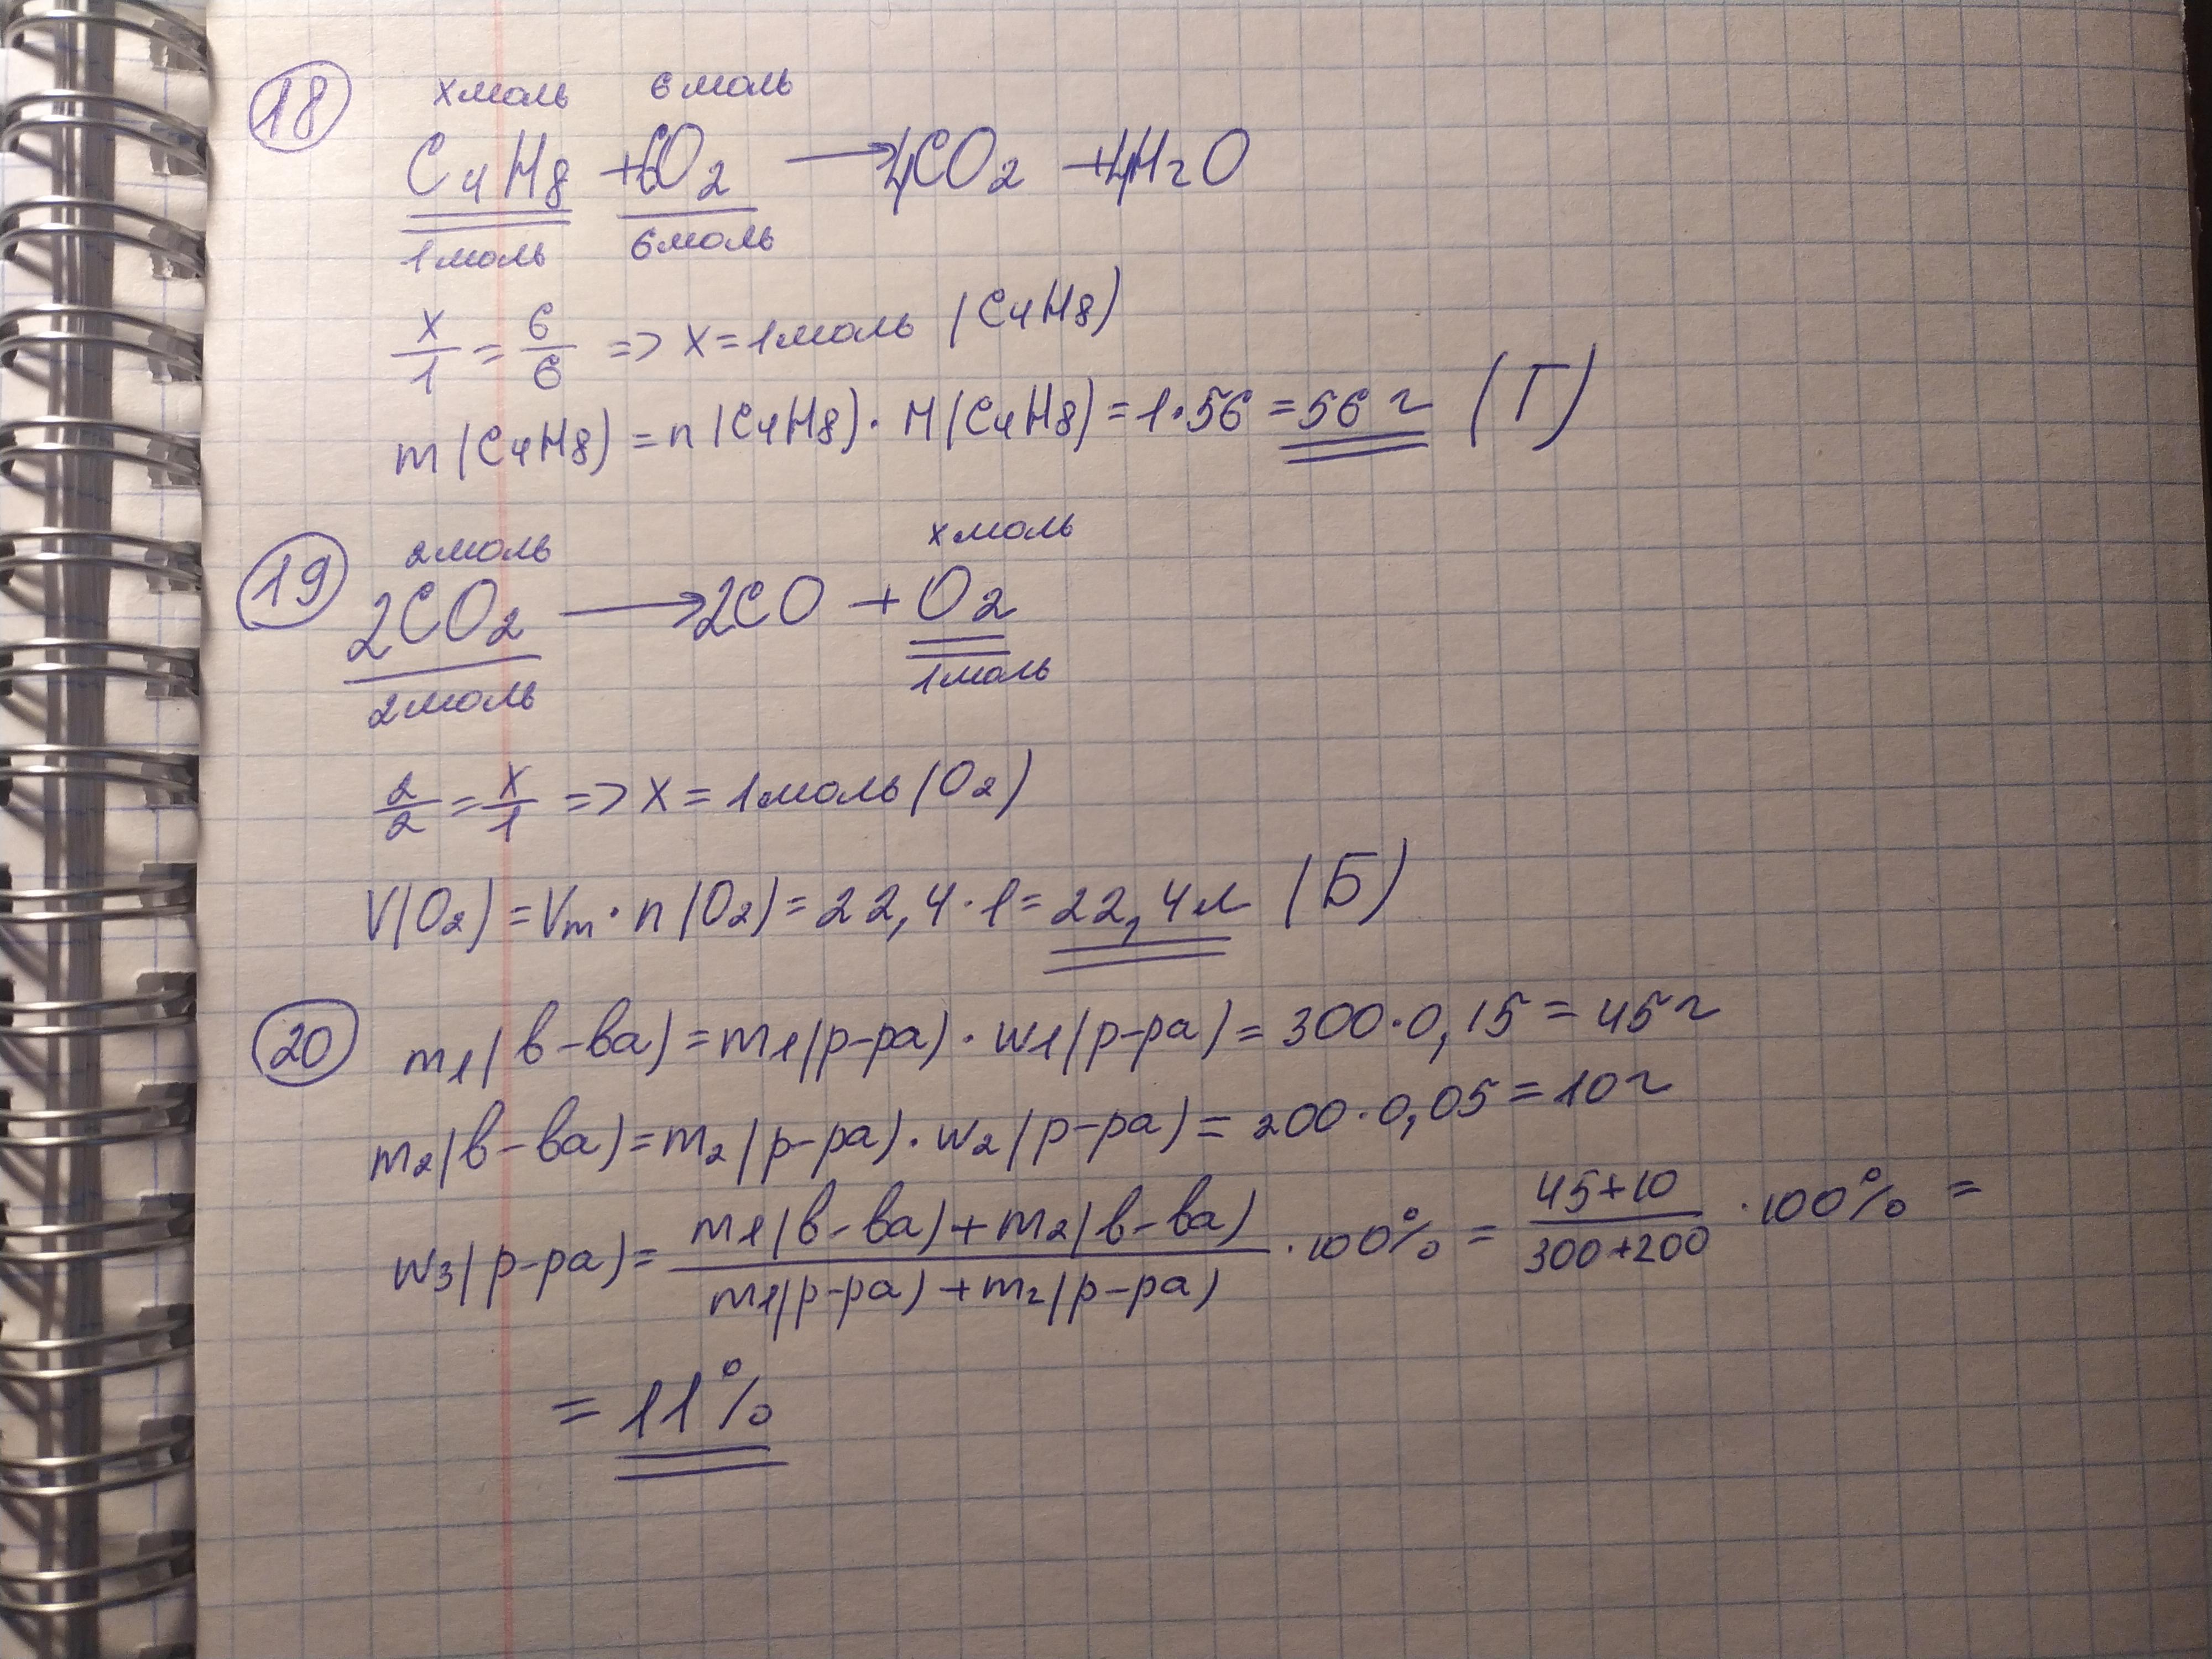 18
хмоль 6моль
C4H8 + 6O2 → 4CO2 + 4H2O
1моль 6моль
x/1 = 6/6 => x = 1моль (C4H8)
m(C4H8) = n(C4H8) · M(C4H8) = 1·56 = 56 г (Г)
19
2моль хмоль
2CO2 → 2CO + O2
2моль 1моль
2/2 = x/1 => x = 1моль (O2)
V(O2) = Vm · n(O2) = 22,4 · 1 = 22,4 л (Б)
20
m1(в-ва) = m1(р-ра) · w1(р-ра) = 300·0,15 = 45 г
m2(в-ва) = m2(р-ра) · w2(р-ра) = 200·0,05 = 10 г
w3(р-ра) = m1(в-ва) + m2(в-ва) / m1(р-ра) + m2(р-ра) · 100% = 45+10 / 300+200 · 100% =
= 11%